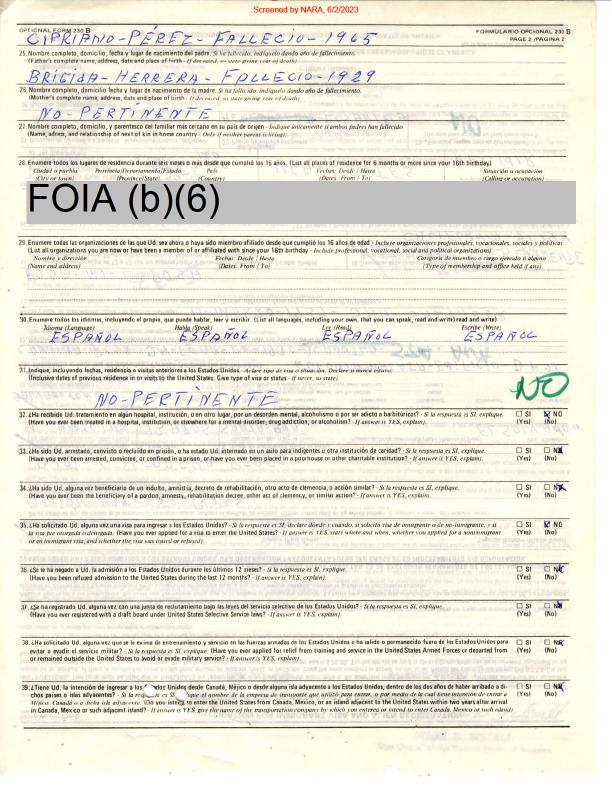 Screened by NARA, 6/2/2023
OPTIONAL FORM 230 B
FORMULARIO OPCIONAL 230 B
PAGE 2 / PAGINA 2
CIPRIANO-PÉREZ-FALLECIO-1965
25. Nombre completo, domicilio, fecha y lugar de nacimiento del padre. Si ha fallecido, indíquelo dando año de fallecimiento.
(Father's complete name, address, date and place of birth - If deceased, so state giving year of death)
BRIGIDA-HERRERA-FALLECIO-1929
26. Nombre completo, domicilio, fecha y lugar de nacimiento de la madre. Si ha fallecido, indíquelo dando año de fallecimiento.
(Mother's complete name, address, date and place of birth - If deceased, so state giving year of death)
NO-PERTINENTE
27. Nombre completo, domicilio, y parentesco del familiar más cercano en su país de origen - Indique únicamente si ambos padres han fallecido.
(Name, adress, and relationship of next of kin in home country - Only if neither parent is living)
28. Enumere todos los lugares de residencia durante seis meses o más desde que cumplió los 16 años. (List all places of residence for 6 months or more since your 16th birthday)
Ciudad o pueblo Provincia/Departamento/Estado País Fechas: Desde / Hasta Situación u ocupación
(City or town) (Province/State) (Country) (Dates: From / To) (Calling or occupation)
FOIA (b)(6)
29. Enumere todas las organizaciones de las que Ud. sea ahora o haya sido miembro afiliado desde que cumplió los 16 años de edad - Incluye organizaciones profesionales, vocacionales, sociales y políticas.
(List all organizations you are now or have been a member of or affiliated with since your 16th birthday - Include professional, vocational, social and political organizations).
Nombre y dirección Fechas: Desde / Hasta Categoría de miembro o cargo ejercido si alguno
(Name and address) (Dates: From / To) (Type of membership and office held if any)
30. Enumere todos los idiomas, incluyendo el propio, que puede hablar, leer y escribir. (List all languages, including your own, that you can speak, read and write)read and write)
Idioma (Language) Habla (Speak) Lee (Read) Escribe (Write)
ESPAÑOL ESPAÑOL ESPAÑOL ESPAÑOL
31. Indique, incluyendo fechas, residencia o visitas anteriores a los Estados Unidos - Aclare tipo de visa o situación. Declare si nunca estuvo.
(Inclusive dates of previous residence in or visits to the United States. Give type of visa or status - If never, so state)
NO-PERTINENTE
NO
32. ¿Ha recibido Ud. tratamiento en algún hospital, institución, o en otro lugar, por un desorden mental, alcoholismo o por ser adicto a barbitúricos? - Si la respuesta es SI, explique. SI NO
(Have you ever been treated in a hospital, institution, or elsewhere for a mental disorder, drug addiction, or alcoholism? - If answer is YES, explain). (Yes) (No)
33. ¿Ha sido Ud. arrestado, convicto o recluido en prisión, o ha estado Ud. internado en un asilo para indigentes u otra institución de caridad? - Si la respuesta es SI, explique. SI NO
(Have you ever been arrested, convicted, or confined in a prison, or have you ever been placed in a poorhouse or other charitable institution? - If answer is YES, explain). (Yes) (No)
34. ¿Ha sido Ud. alguna vez beneficiario de un indulto, amnitría, decreto de rehabilitación, otro acto de clemencia, o acción similar? - Si la respuesta es SI, explique. SI NO
(Have you ever been the beneficiary of a pardon, amnesty, rehabilitation decree, other act of clemency, or similar action? - If answer is YES, explain). (Yes) (No)
35. ¿Ha solicitado Ud. alguna vez una visa para ingresar a los Estados Unidos? - Si la respuesta es SI, declare dónde y cuándo, si solicitó visa de inmigrante o de no-inmigrante, y si SI NO
la visa fue otorgada o denegada. (Have you ever applied for a visa to enter the United States? - If answer is YES, state where and when, whether you applied for a nonimmigrant (Yes) (No)
or an immigrant visa, and whether the visa was issued or refused).
36. ¿Se ha negado a Ud. la admisión a los Estados Unidos durante los últimos 12 meses? - Si la respuesta es SI, explique. SI NO
(Have you been refused admission to the United States during the last 12 months? - If answer is YES, explain). (Yes) (No)
37. ¿Se ha registrado Ud. alguna vez con una junta de reclutamiento bajo las leyes del servicio selectivo de los Estados Unidos? - Si la respuesta es SI, explique. SI NO
(Have you ever registered with a draft board under United States Selective Service laws? - If answer is YES, explain). (Yes) (No)
38. ¿Ha solicitado Ud. alguna vez que se le exima de entrenamiento y servicio en las fuerzas armadas de los Estados Unidos o ha salido o permanecido fuera de los Estados Unidos para SI NO
evitar o evadir el servicio militar? - Si la respuesta es SI, explique. (Have you ever applied for relief from training and service in the United States Armed Forces or departed from (Yes) (No)
or remained outside the United States to avoid or evade military service? - If answer is YES, explain).
39. ¿Tiene Ud. la intención de ingresar a los Estados Unidos desde Canadá, Méjico o desde alguna isla adyacente a los Estados Unidos, dentro de los dos años de haber arribado a di- SI NO
chos países o islas adyacentes? - Si la respuesta es SI, dé el nombre de la empresa de transporte que utilizó para entrar o, por medio de la cual tiene intención de entrar a (Yes) (No)
Méjico, Canadá o a dicha isla adyacente. (Do you intend to enter the United States from Canada, Mexico, or an island adjacent to the United States within two years after arrival
in Canada, Mexico, or such adjacent island? - If answer is YES, give the name of the transportation company by which you entered or intend to enter Canada, Mexico or such island)